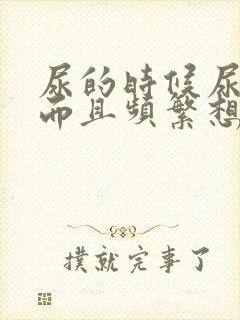 尿的時候尿
而且頻繁想
撲就完事了